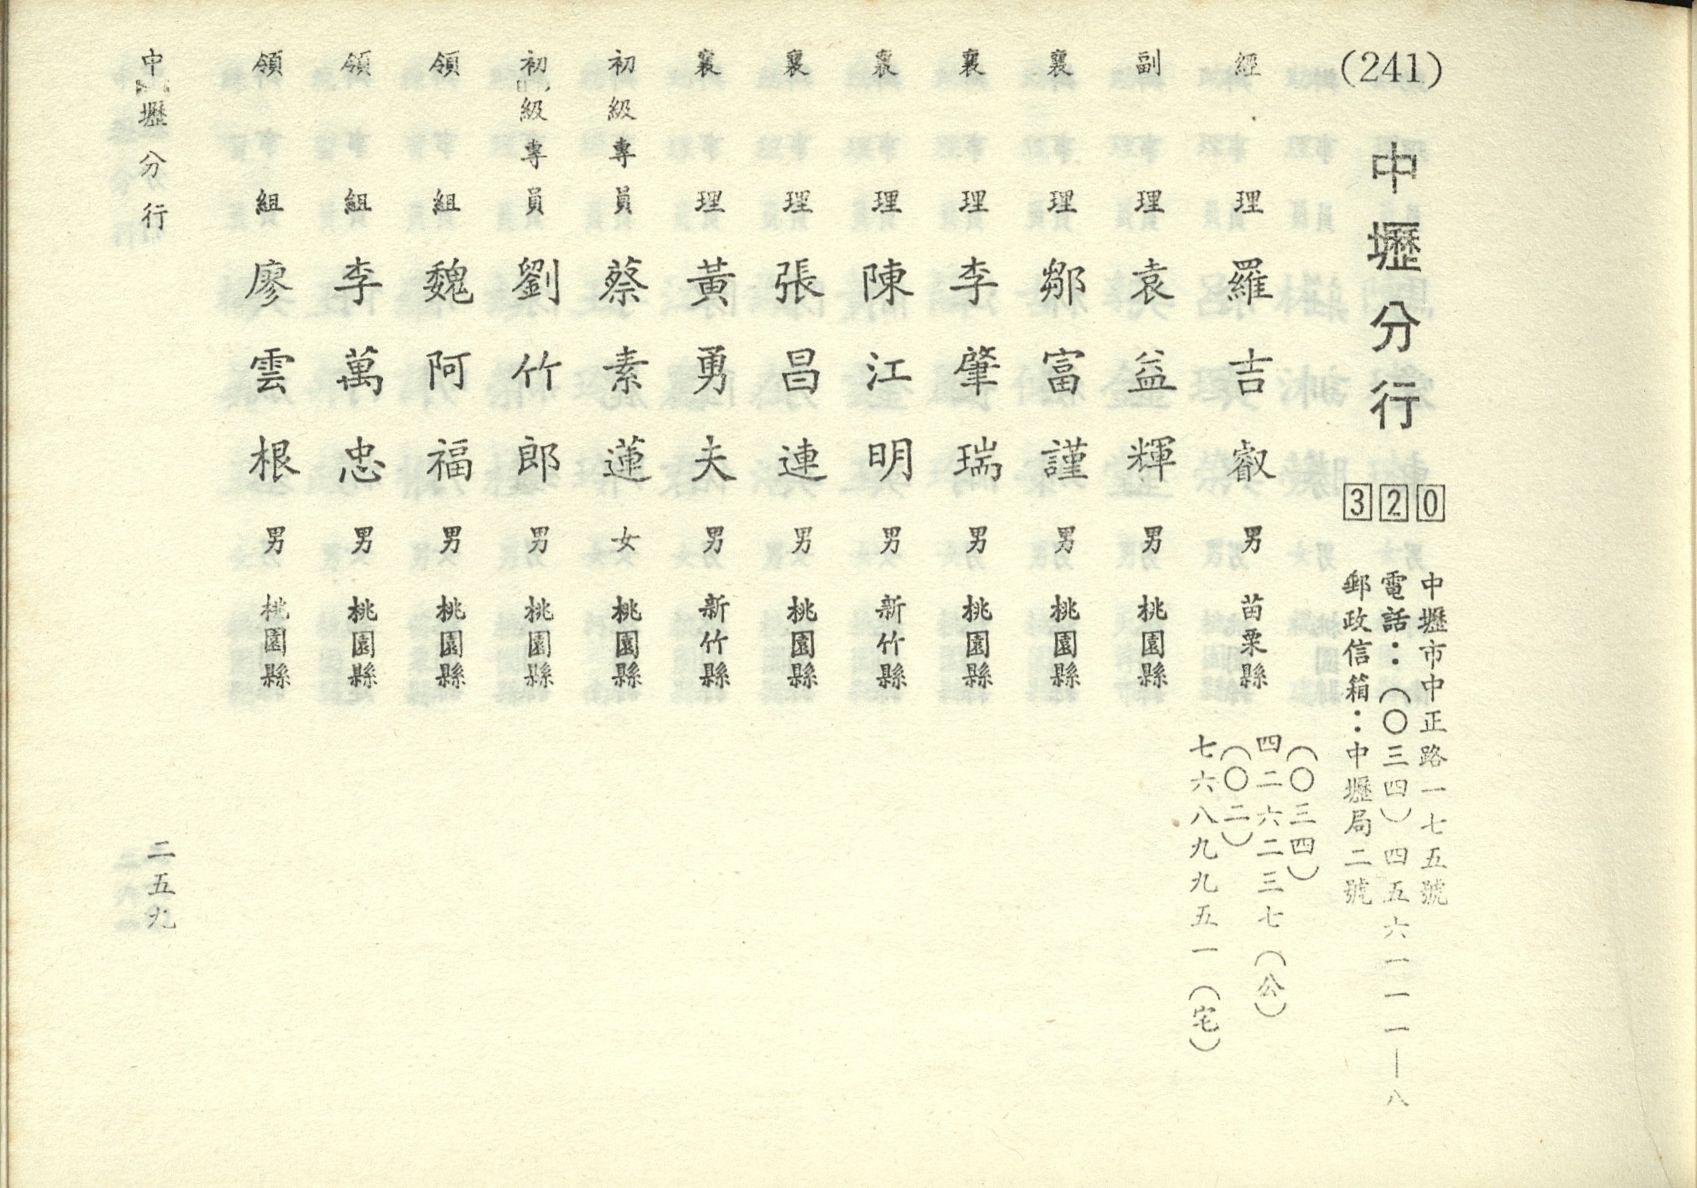 (241)
中壢分行
320
中壢市中正路一七五號
電話：(〇三四)四五六一一一—八
郵政信箱：中壢局二號
經理 羅吉叡 男 苗栗縣
(〇三四)
四二六二三七(公)
(〇二)
七六八九九五一(宅)
副理 袁益輝 男 桃園縣
襄理 鄒富謹 男 桃園縣
襄理 李肇瑞 男 桃園縣
襄理 陳江明 男 新竹縣
襄理 張昌連 男 桃園縣
襄理 黃勇夫 男 新竹縣
初級專員 蔡素蓮 女 桃園縣
初級專員 劉竹郎 男 桃園縣
領組 魏阿福 男 桃園縣
領組 李萬忠 男 桃園縣
領組 廖雲根 男 桃園縣
中壢分行
二五九